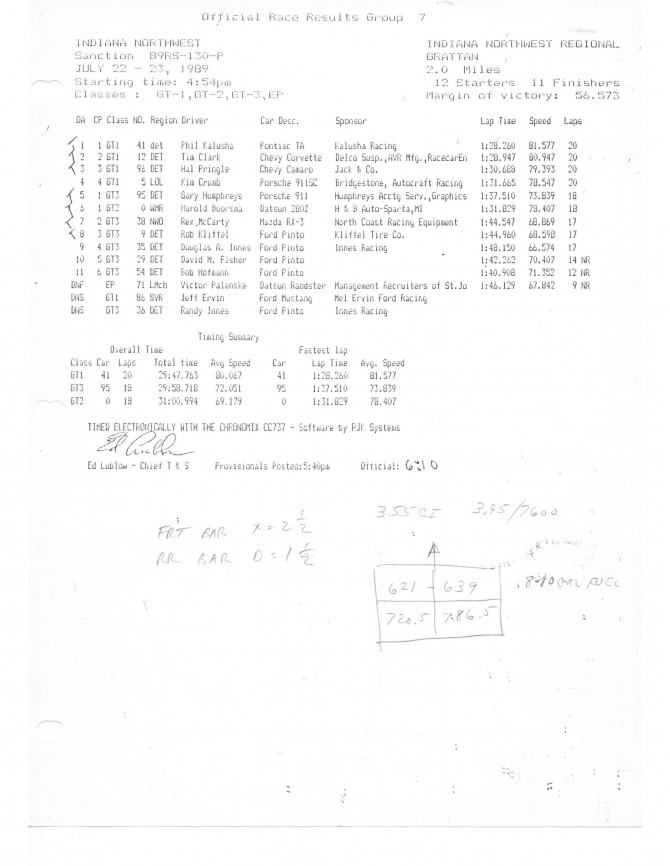 Official Race Results Group 7
INDIANA NORTHWEST
Sanction 89RS-130-P
JULY 22 - 23, 1989
Starting time: 4:54pm
Classes : GT-1,GT-2,GT-3,EP
INDIANA NORTHWEST REGIONAL
GRATTAN
2.0 Miles
12 Starters 11 Finishers
Margin of victory: 56.573
OA CP Class NO. Region Driver Car Desc. Sponsor Lap Time Speed Laps
1 1 GT1 41 det Phil Kalusha Pontiac TA Kalusha Racing 1:28.260 81.577 20
2 2 GT1 12 DET Tim Clark Chevy Corvette Delco Susp.,AVR Mfg.,RacecarEn 1:28.947 80.947 20
3 3 GT1 96 DET Hal Pringle Chevy Camaro Jack & Co. 1:30.688 79.393 20
4 4 GT1 5 LOL Kim Crumb Porsche 911SC Bridgestone, Autocraft Racing 1:31.665 78.547 20
5 1 GT3 95 DET Gary Humphreys Porsche 911 Humphreys Acctg Serv.,Graphics 1:37.510 73.839 18
6 1 GT2 0 WMR Harold Boorsma Datsun 280Z H & B Auto-Sparta,MI 1:31.829 78.407 18
7 2 GT3 38 NWO Rex McCarty Mazda RX-3 North Coast Racing Equipment 1:44.547 68.869 17
8 3 GT3 9 DET Rob Kliffel Ford Pinto Kliffel Tire Co. 1:44.960 68.598 17
9 4 GT3 35 DET Douglas A. Innes Ford Pinto Innes Racing 1:48.150 66.574 17
10 5 GT3 29 DET David M. Fisher Ford Pinto 1:42.262 70.407 14 NR
11 6 GT3 54 DET Bob Hofmann Ford Pinto 1:40.908 71.352 12 NR
DNF EP 71 LMch Victor Palanske Datsun Raodster Management Recruiters of St.Jo 1:46.129 67.842 9 NR
DNS GT1 86 SVR Jeff Ervin Ford Mustang Mel Ervin Ford Racing
DNS GT3 36 DET Randy Innes Ford Pinto Innes Racing
Timing Summary
Overall Time Fastest lap
Class Car Laps Total time Avg Speed Car Lap Time Avg. Speed
GT1 41 20 29:47.763 80.067 41 1:28.260 81.577
GT3 95 18 29:58.718 72.051 95 1:37.510 73.839
GT2 0 18 31:00.994 69.179 0 1:31.829 78.407
TIMED ELECTRONICALLY WITH THE CHRONOMIX CC737 - Software by RJK Systems
Ed Lublow - Chief T & S Provisionals Posted:5:40pm Official: 6:10
355CI 3.95/7600
FRT BAR X = 2 1/2
RR BAR D = 1 1/2
621 - 639
720.5 786.5
8-10 GAL FUEL